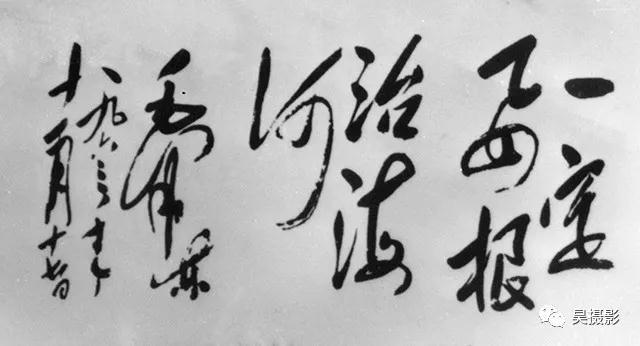 一定
要根
治海
河
毛泽东
一九六三年
十一月十七日
昊摄影